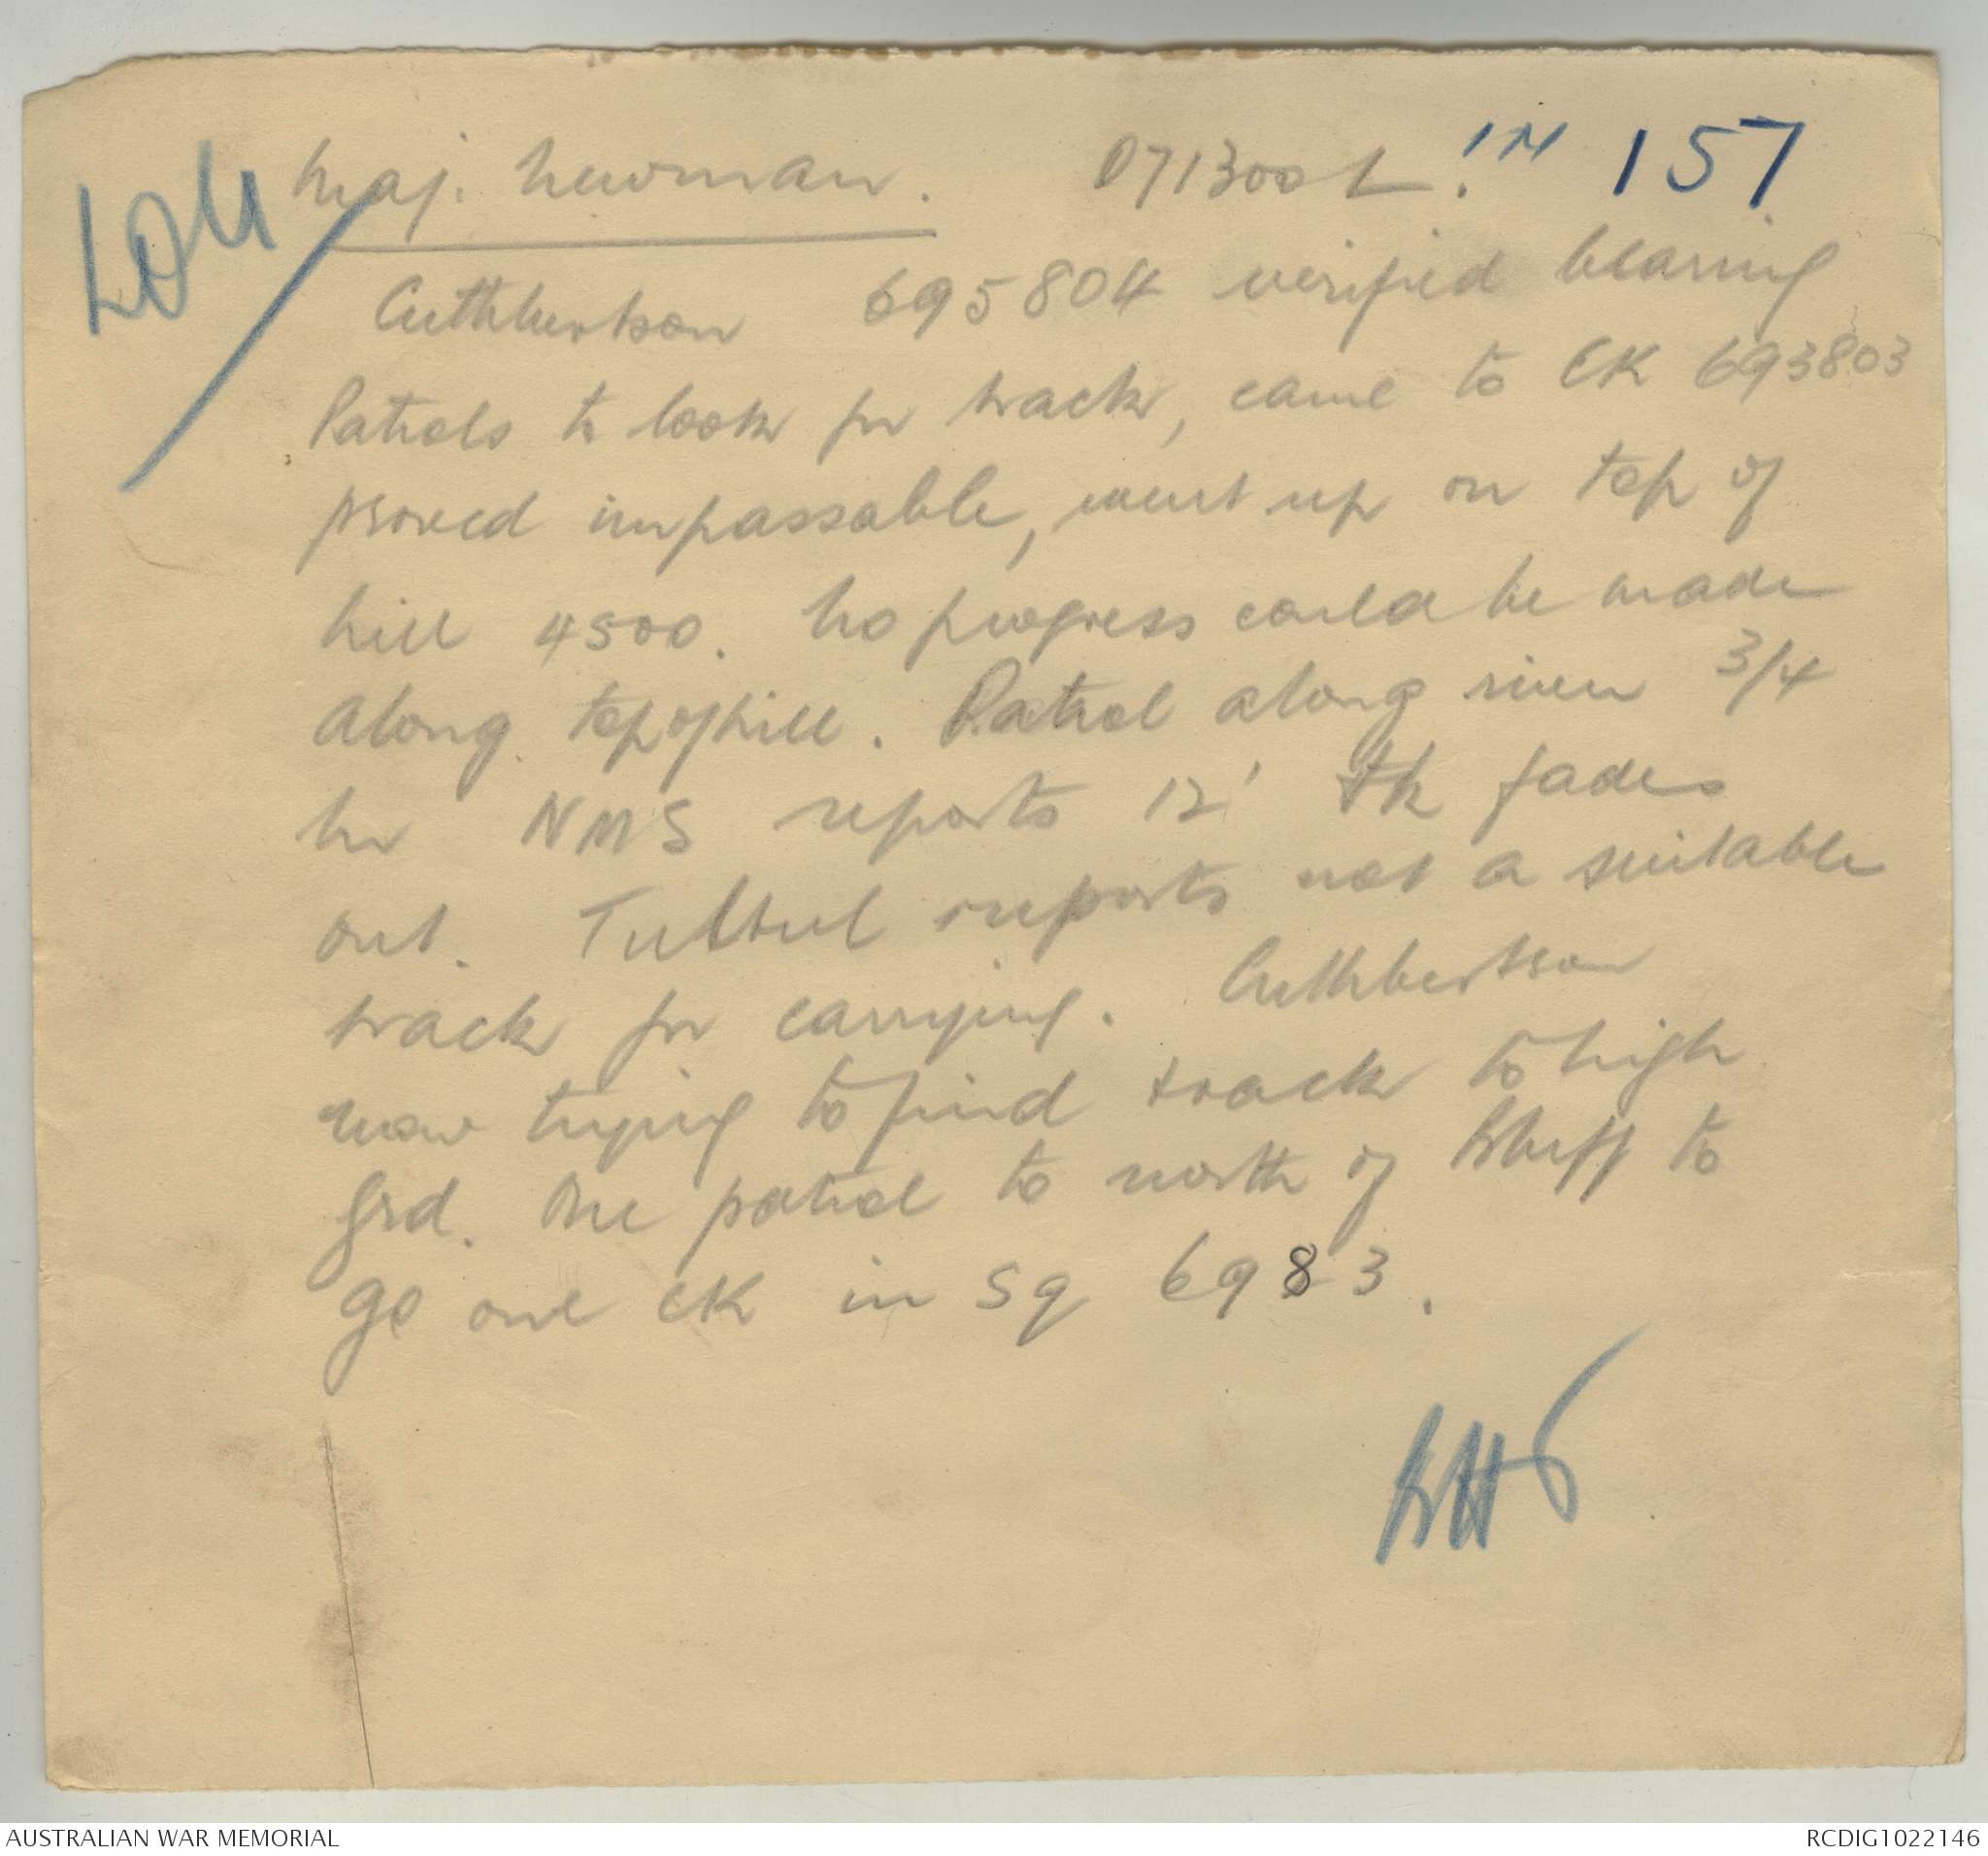 Maj. Newman. 071300L. IN 157
Cuthbertson 695804 verified bearing
Patrols to look for track, came to CK 693803
proved impassable, went up on top of
hill 4500. No progress could be made
along top of hill. Patrol along river 3/4
hr NMS reports 12' tk fades
out. Tultul reports not a suitable
track for carrying. Cuthbertson
now trying to find track to high
grd. One patrol to north of bluff to
go one CK in Sq 6983.
AUSTRALIAN WAR MEMORIAL
RCDIG1022146